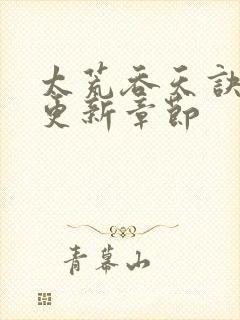 太荒吞天诀
更新章节
青幕山